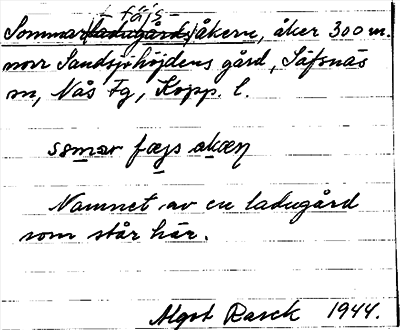 fäjs-
Sommar(ladugårds)åkern, åker 300 m.
norr Sandsjöhöjdens gård, Säfsnäs
sn, Nås Fg, Kopp. l.
sömar fæjs akæn
Namnet av en ladugård
som står här.
Algot Rasck 1944.